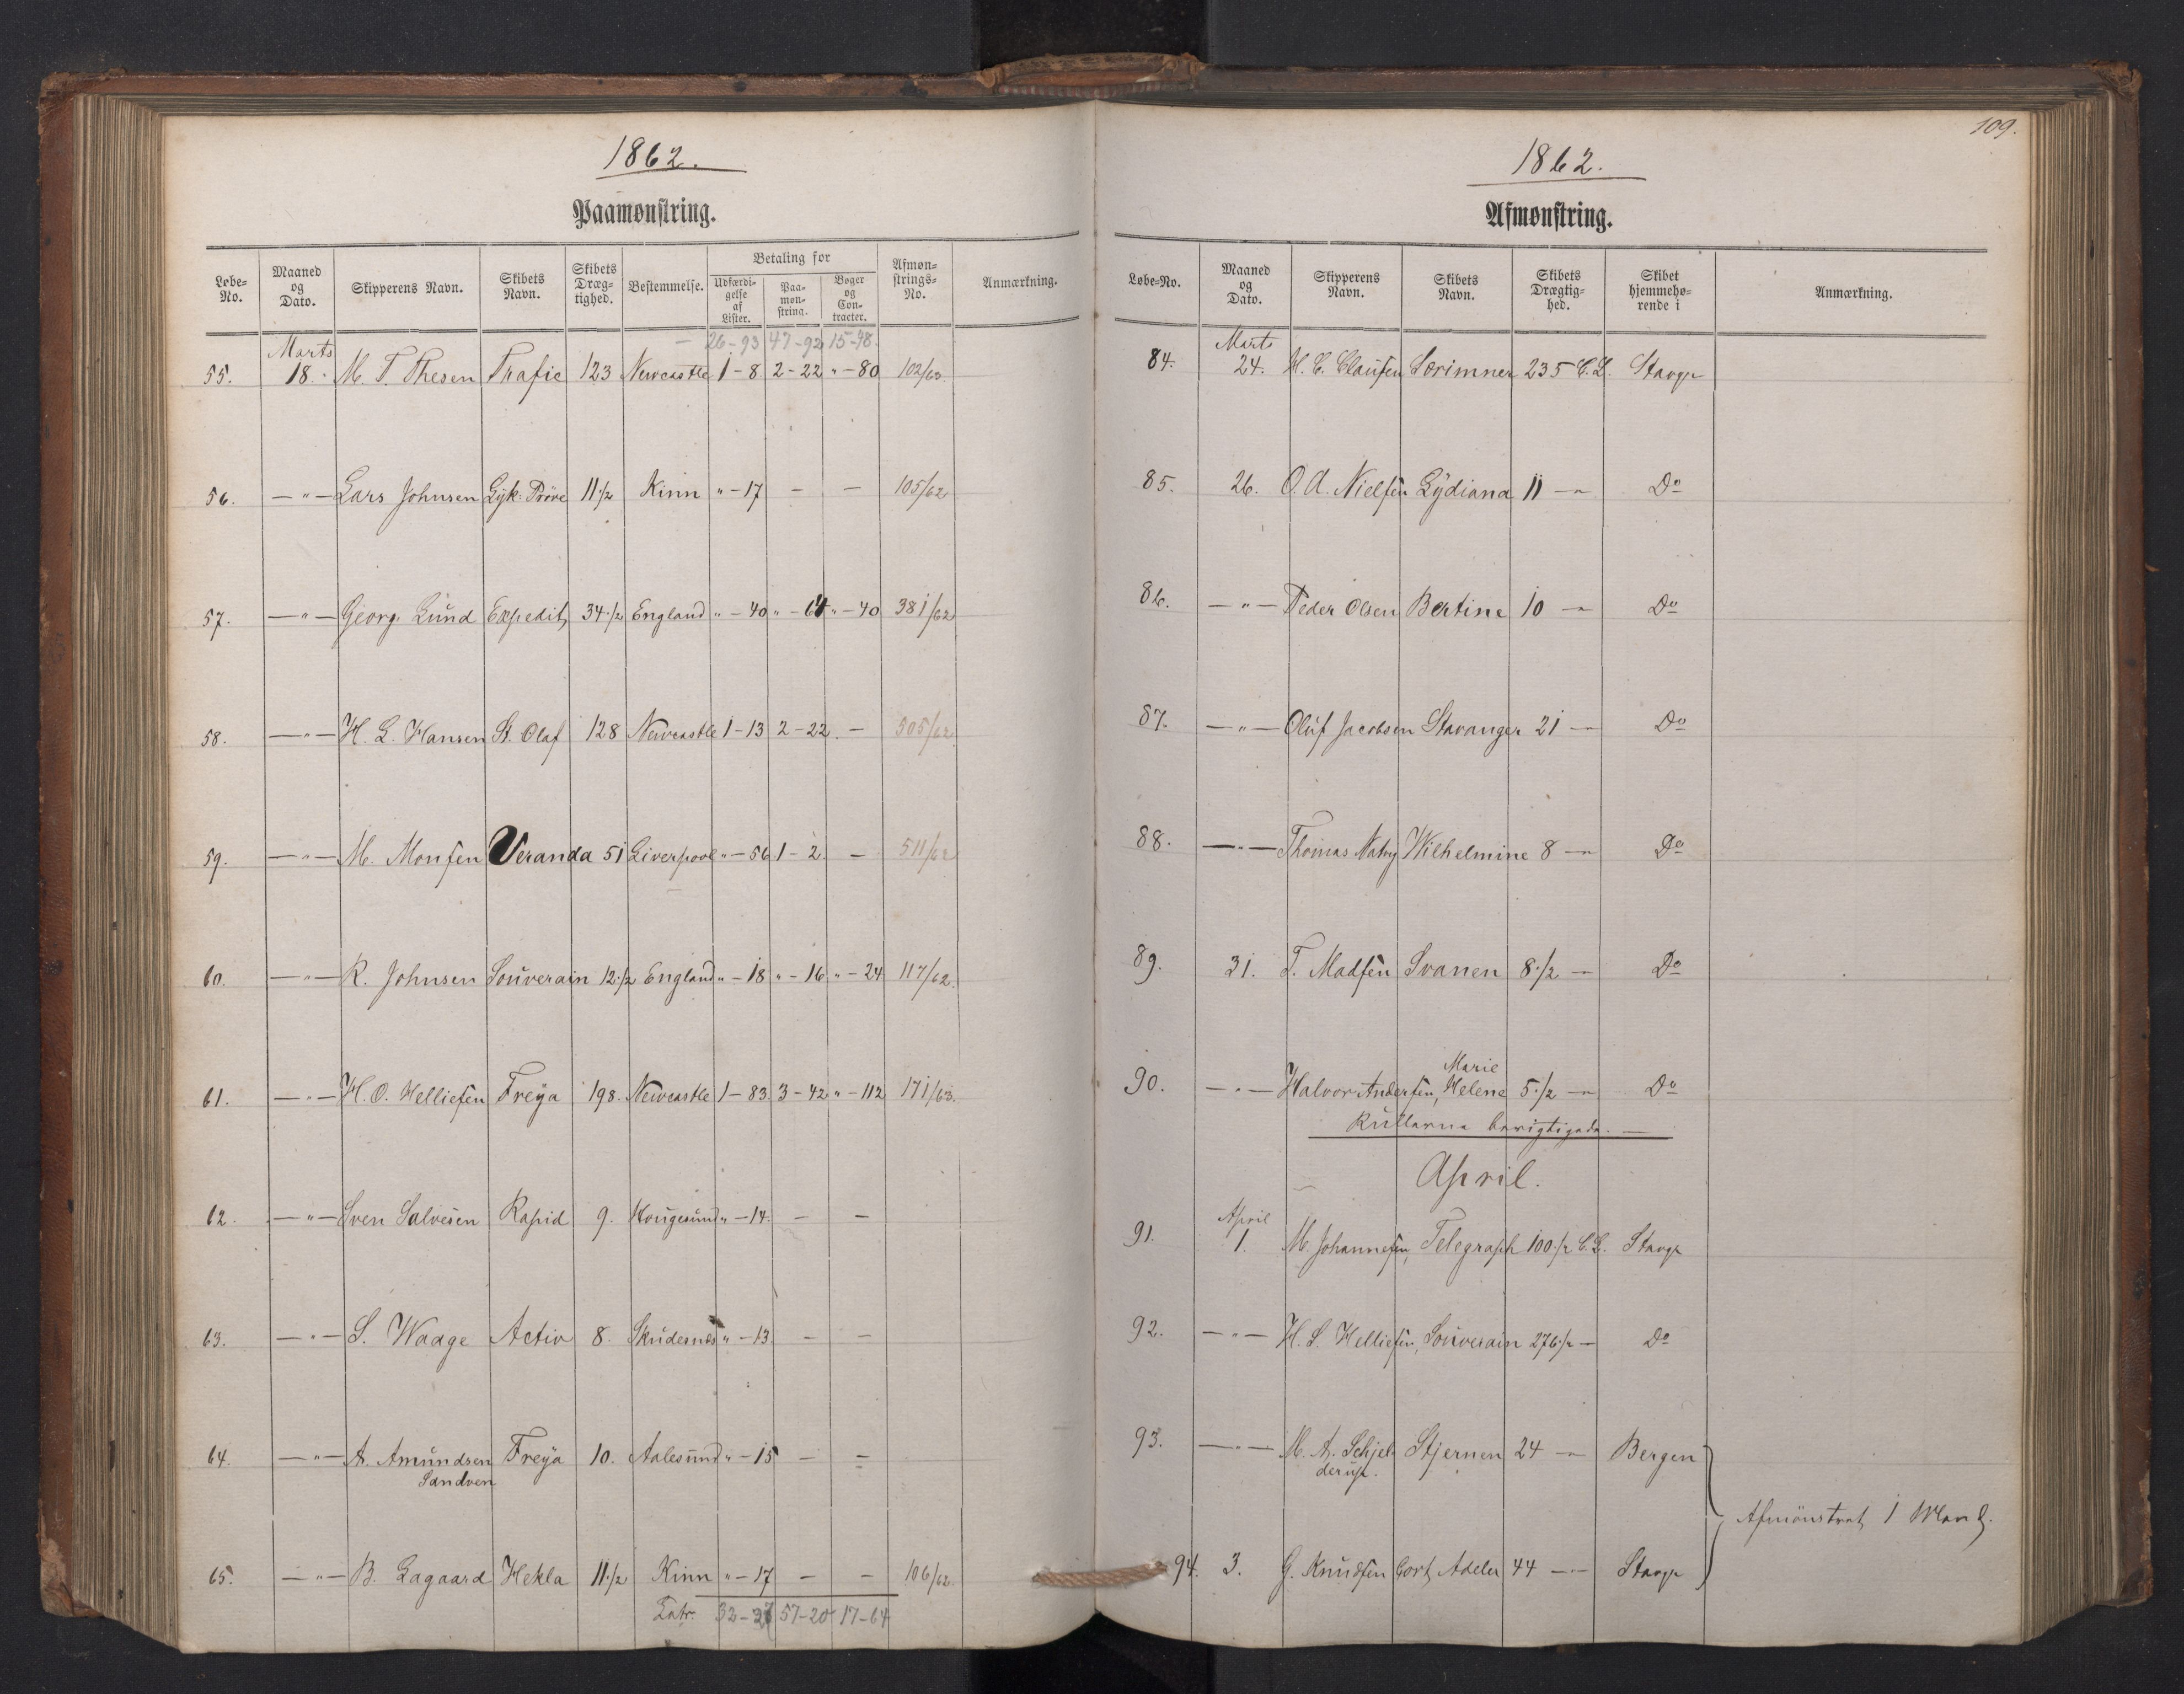 1862.
Paamønstring.
Løbe-No. Maaned og Dato. Skipperens Navn. Skibets Navn. Skibets Dræg-tighed. Bestemmelse. Betaling for Udfærdi-gelse af Lister. Paa-møn-string. Bøger og Con-tracter. Afmøn-strings-No. Anmærkning.
26-93 47-92 15-48.
Marts
55. 18. M. T. Thesen Trafic 123 Newcastle 1-8 2-22 "-80 102/63.
56. —"— Lars Johnsen Lyk: Pröve 11 1/2 Kinn "-17 — — 105/62
57. —"— Georg Lund Expedit, 34 1/2 England "-40 "-64 "-40 381/62
58. —"— H. L. Hansen St. Olaf 128 Newcastle 1-13 2-22. — 505/62
59. —"— M. Monsen Veranda 51 Liverpool "-56 1-2. — 511/62
60. —"— R. Johnsen Souverain 12 1/2 England "-18 "-16 "-24 117/62.
61. —"— H. O. Helliesen Freya 198. Newcastle 1-83 3-42 "-112 171/63.
62. —"— Sven Salvesen Rapid 9. Hougesund "-14. — —
63. —"— S. Waage Activ 8. Skudernæs "-13. — —
64. —"— A. Amundsen Freya 10. Aalesund "-15 — —
Sandven
65. —"— B. Lagaard Hekla 11 1/2 Kinn "-17 — — 106/62.
Latr. 32-27 57-20 17-64
109.
1862.
Afmønstring.
Løbe-No. Maaned og Dato. Skipperens Navn. Skibets Navn. Skibets Drægtig-hed. Skibet hjemmehø-rende i Anmærkning.
Marts
84. 24. H. C. Clausen Særimner 235 C.L. Stavgr
85. 26. O. A. Nielsen Lydiana 11 —"— Do
86. —"— Peder Olsen Bertine 10 —"— Do
87. —"— Oluf Jacobsen Stavanger 21 —"— Do
88. —"— Thomas Natvig Wilhelmine 8 —"— Do
89. 31. T. Madsen Svanen 8 1/2 —"— Do
Marie
90. —"— Halvor Andersen, Helene 5 1/2 —"— Do
Rullerne berigtigede. —
April.
April
91. 1. M. Johannesen, Telegraph 100 1/2 C.L. Stavgr
92. —"— H. S. Helliesen, Souverain 276 1/2 — Do
93. —"— M. A. Schjel- Stjernen 24 —"— Bergen
derup.
Afmönstret 1 Mand.
94. 3. G. Knudsen Cort Adeler 44 —"— Stavgr